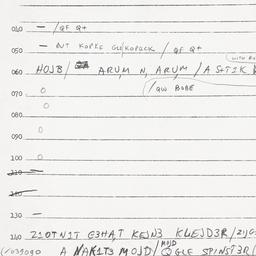 040 — / QF Q+
050 — BUT KOPKE GL/KOPECK / QF Q+
060 HOJB/ ARUM N, ARUM / A STIK
(WITH
070 0 /QW BOBE
080 0
090 0
100 0
110
120
130 —
140 Z1OTN1T G3HA,T KEJN3 KLEJD3R/
(/039090 A NAK1T3 MOJD/ MOJD GLE SPINST3R/